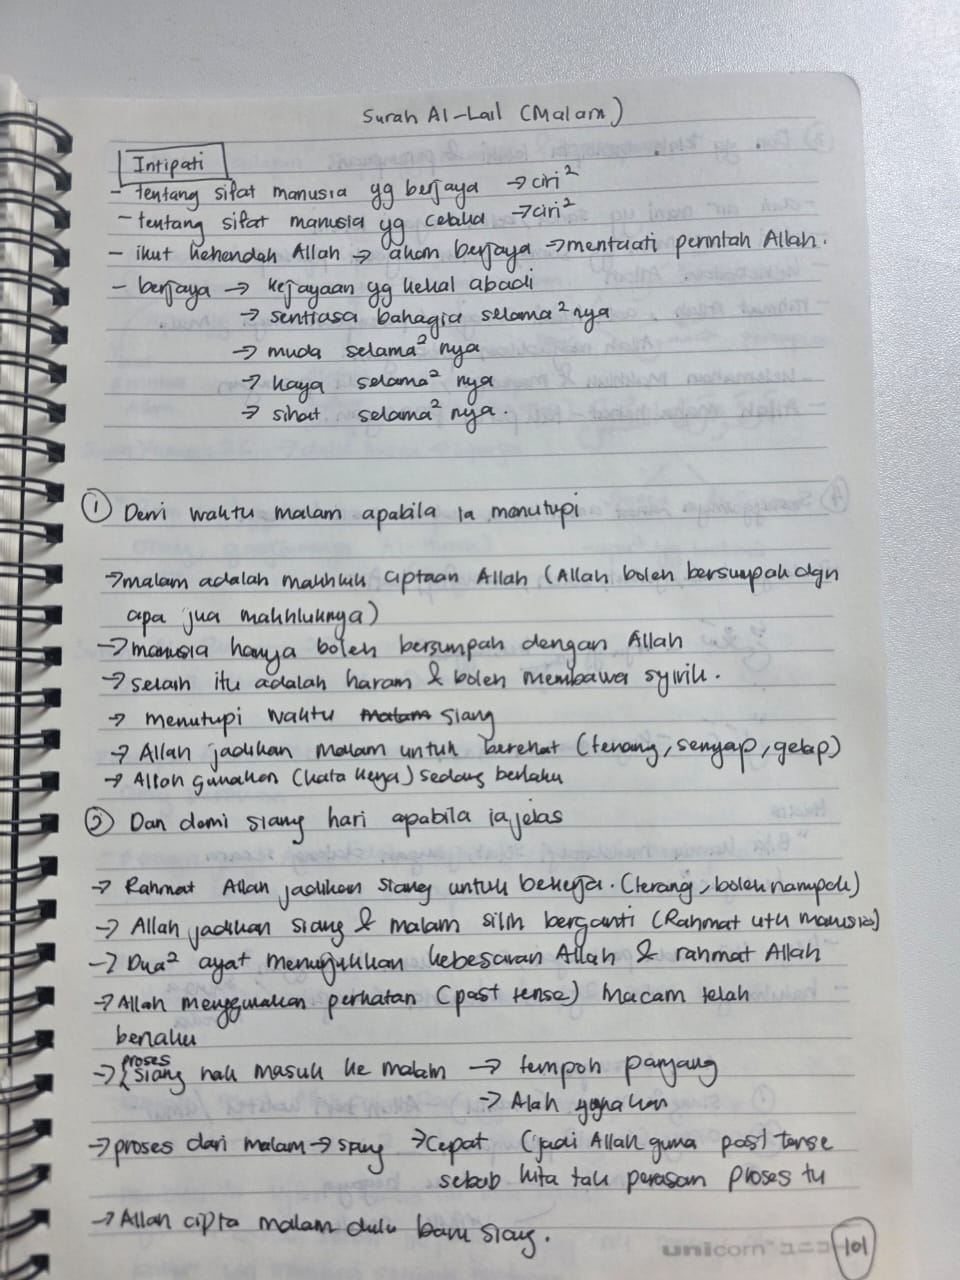 Surah Al-Lail (Malam)
Intipati
- tentang sifat manusia yg berjaya → ciri²
- tentang sifat manusia yg celaka → ciri²
- ikut kehendak Allah → akan berjaya → mentaati perintah Allah.
- berjaya → kejayaan yg kekal abadi
→ sentiasa bahagia selama² nya
→ muda selama² nya
→ kaya selama² nya
→ sihat selama² nya.
① Demi waktu malam apabila ia menutupi
→ malam adalah makhluk ciptaan Allah (Allah boleh bersumpah dgn
apa jua makhluknya)
→ manusia hanya boleh bersumpah dengan Allah
→ selain itu adalah haram & boleh membawa syirik.
→ menutupi waktu malam siang
→ Allah jadikan malam untuk berehat (tenang, senyap, gelap)
→ Allah gunakan (kata kerja) sedang berlaku
② Dan demi siang hari apabila ia jelas
→ Rahmat Allah jadikan siang untuk bekerja. (terang, boleh nampak)
→ Allah jadikan siang & malam silih berganti (Rahmat utk manusia)
→ Dua² ayat menunjukkan kebesaran Allah & rahmat Allah
→ Allah menggunakan perkataan (past tense) macam telah
berlaku
→ { proses siang nak masuk ke malam → tempoh panjang
→ Alah
→ proses dari malam → siang → cepat (jadi Allah guna past tense
sebab kita tak perasan proses tu
→ Allah cipta malam dulu baru siang.
unicorn ユニコ 101